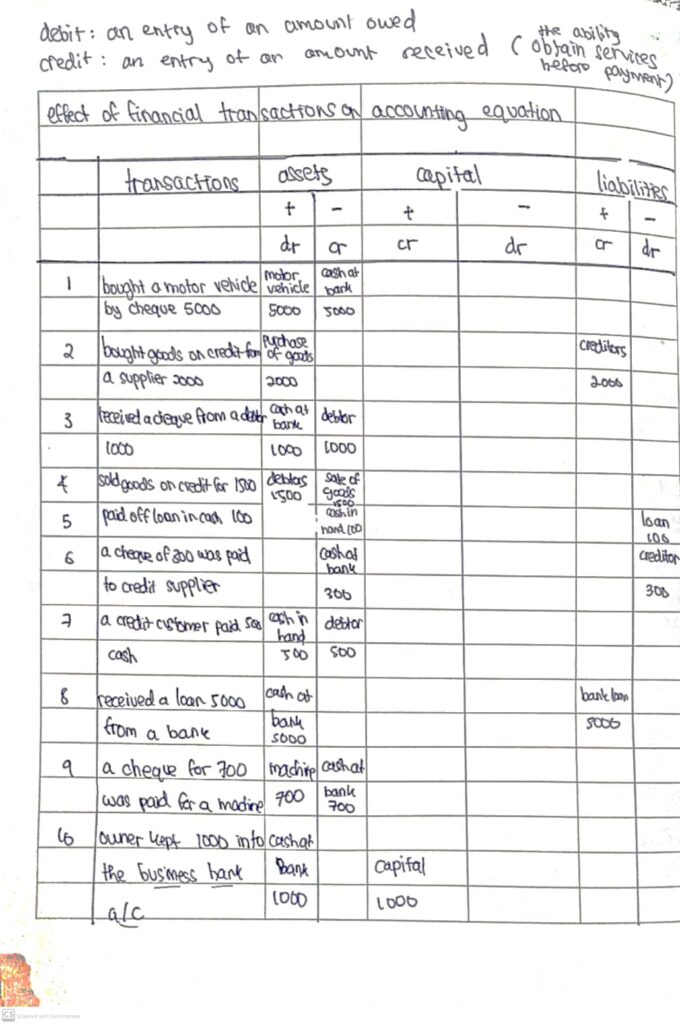 debit : an entry of an amount owed
credit : an entry of an amount received ( the ability
obtain services
before payment)
effect of financial transactions on accounting equation
transactions assets capital liabilities
+ - + - + -
dr cr cr dr cr dr
1 bought a motor vehicle motor vehicle cash at bank
by cheque 5000 5000 5000
2 bought goods on credit from purchase of goods creditors
a supplier 2000 2000 2000
3 received a cheque from a debtor cash at bank debtor
1000 1000 1000
4 sold goods on credit for 1500 debtors 1500 sale of goods 1500
5 paid off loan in cash 100 cash in hand 100 loan 100
6 a cheque of 300 was paid cash at bank creditor
to credit supplier 300 300
7 a credit customer paid 500 cash in hand debtor
cash 500 500
8 received a loan 5000 cash at bank loan
from a bank bank 5000 5000
9 a cheque for 700 machine cash at
was paid for a machine 700 bank 700
10 owner kept 1000 into cash at
the business bank bank capital
a/c 1000 1000
CS Scanned with CamScanner